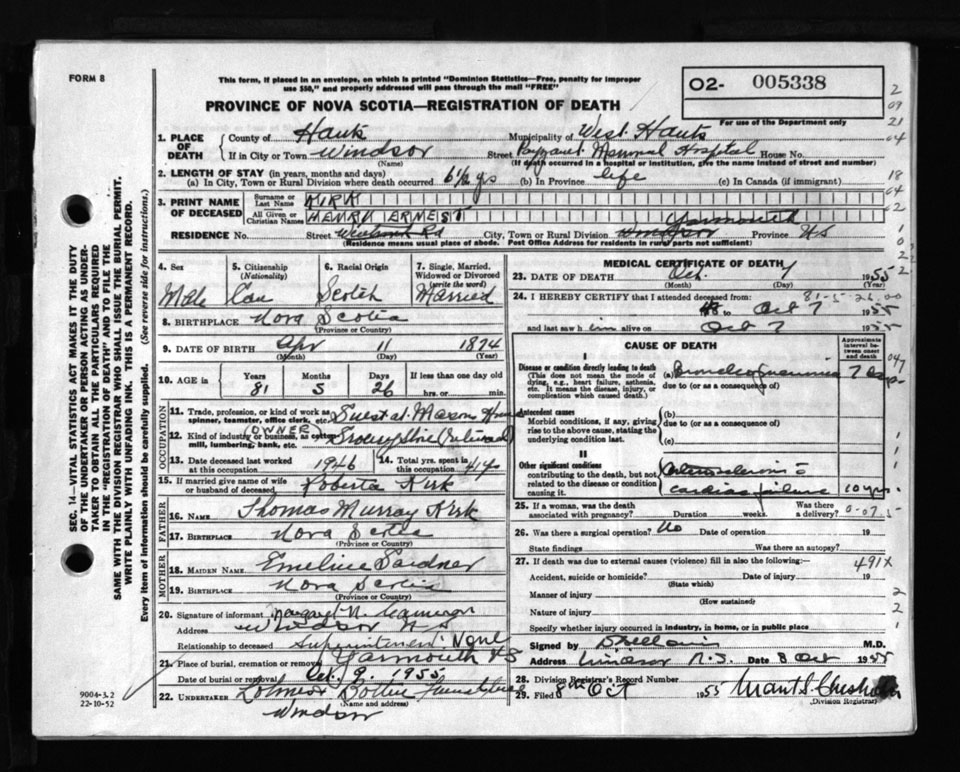 FORM 8
This form, if placed in an envelope, on which is printed "Dominion Statistics—Free, penalty for improper
use $50," and properly addressed will pass through the mail "FREE"
PROVINCE OF NOVA SCOTIA—REGISTRATION OF DEATH
O2- 005338
For use of the Department only
1. PLACE OF DEATH
County of Hants Municipality of West Hants
If in City or Town Windsor Street Payzant Memorial Hospital House No.
(Name) (If death occurred in a hospital or institution, give the name instead of street and number)
2. LENGTH OF STAY (in years, months and days)
(a) In City, Town or Rural Division where death occurred 6½ yrs (b) In Province life (c) In Canada (if immigrant)
3. PRINT NAME OF DECEASED
Surname or Last Name KIRK
All Given or Christian Names HENRY ERNEST
Yarmouth
RESIDENCE No. Street Rd City, Town or Rural Division Windsor Province NS
(Residence means usual place of abode. Post Office Address for residents in rural parts not sufficient)
4. Sex Male
5. Citizenship (Nationality) Can
6. Racial Origin Scotch
7. Single, Married, Widowed or Divorced (write the word) Married
8. BIRTHPLACE Nova Scotia
(Province or Country)
9. DATE OF BIRTH Apr 11 1874
(Month) (Day) (Year)
10. AGE in Years 81 Months 5 Days 26 If less than one day old
hrs. min.
OCCUPATION
11. Trade, profession, or kind of work as spinner, teamster, office clerk, etc. Guest at Mason Home
12. Kind of industry or business, as cotton mill, lumbering, bank, etc. (OWNER) (retired)
13. Date deceased last worked at this occupation 1946
14. Total yrs. spent in this occupation
15. If married give name of wife or husband of deceased Roberta Kirk
FATHER
16. NAME Thomas Murray Kirk
17. BIRTHPLACE Nova Scotia
(Province or Country)
MOTHER
18. MAIDEN NAME Emeline Gardner
19. BIRTHPLACE Nova Scotia
(Province or Country)
20. Signature of informant Margaret N. Cameron
Address Windsor N S
Relationship to deceased Superintendent None
21. Place of burial, cremation or removal Yarmouth NS
Date of burial or removal Oct. 9. 1955
22. UNDERTAKER
(Name and address)
Windsor
MEDICAL CERTIFICATE OF DEATH
23. DATE OF DEATH Oct. 7 1955
(Month) (Day) (Year)
81-5-26.00
24. I HEREBY CERTIFY that I attended deceased from:
to Oct 7 1955
and last saw him alive on Oct 7 1955
CAUSE OF DEATH
Approximate interval between onset and death
I
Disease or condition directly leading to death (a) Bronchopneumonia 7 days
(This does not mean the mode of dying, e.g., heart failure, asthenia, etc. It means the disease, injury, or complication which caused death.)
due to (or as a consequence of)
Antecedent causes (b)
Morbid conditions, if any, giving rise to the above cause, stating the underlying condition last.
due to (or as a consequence of)
(c)
II
Other significant conditions contributing to the death, but not related to the disease or condition causing it.
Arteriosclerosis c̄
cardiac failure 10 yrs.
25. If a woman, was the death associated with pregnancy? Duration weeks. Was there a delivery?
26. Was there a surgical operation? No Date of operation 19
State findings Was there an autopsy?
27. If death was due to external causes (violence) fill in also the following:- 491X
Accident, suicide or homicide? Date of injury 19
(State which)
Manner of injury
(How sustained)
Nature of injury
Specify whether injury occurred in industry, in home, or in public place
Signed by M.D.
Address Windsor N.S. Date 8 Oct 1955
28. Division Registrar's Record Number
29. Filed 8th Oct 1955
(Division Registrar)
SEC. 14—VITAL STATISTICS ACT MAKES IT THE DUTY
OF THE UNDERTAKER OR PERSON ACTING AS UNDER-
TAKER TO OBTAIN ALL THE PARTICULARS REQUIRED
IN THE "REGISTRATION OF DEATH" AND TO FILE THE
SAME WITH THE DIVISION REGISTRAR WHO SHALL ISSUE THE BURIAL PERMIT.
WRITE PLAINLY WITH UNFADING INK. THIS IS A PERMANENT RECORD.
Every item of information should be carefully supplied. (See reverse side for instructions.)
9004-3.2
22-10-52